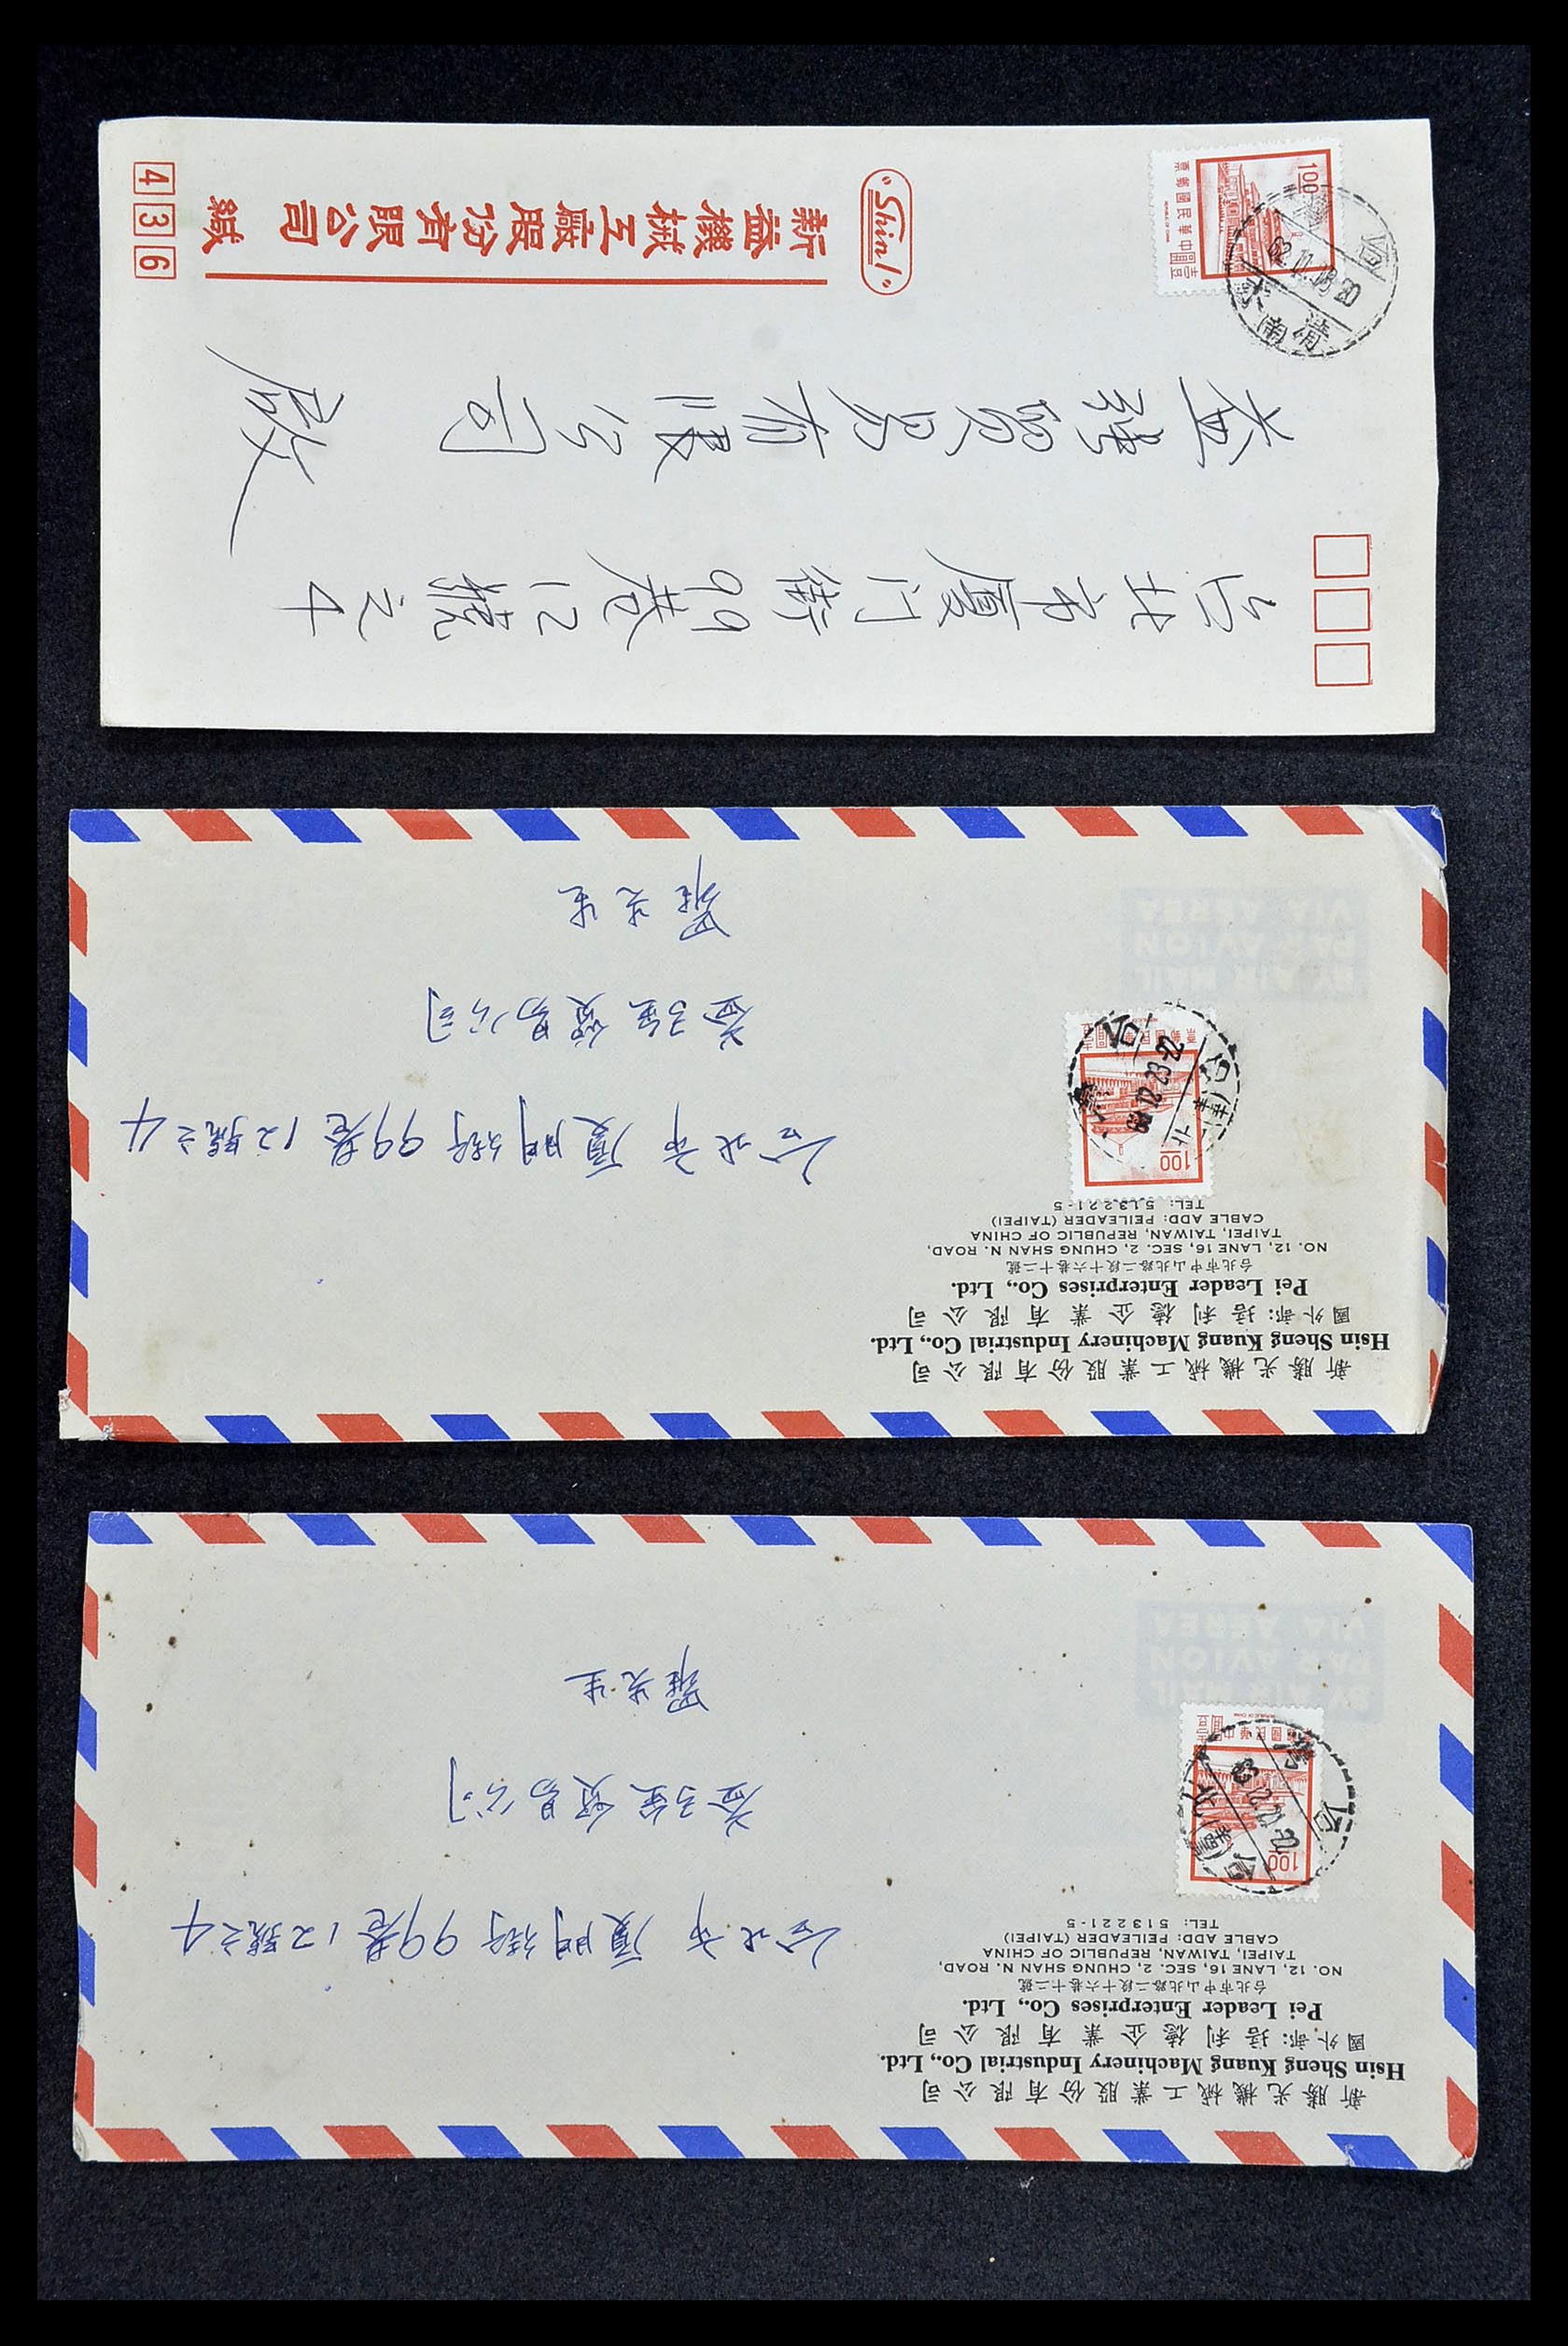 436
新益機械工廠股份有限公司 緘
"Shin I"
1.00
中華民國郵票
壹圓
REPUBLIC OF CHINA
63.11.18.20
清
南
貿易有限公司
啟
台北市厦门街99巷12號之4
羅先生
貿易公司
台北市厦門街99巷12號之4
BY AIR MAIL
PAR AVION
VIA AEREA
中華民國郵票
壹圓
1.00
台北
12.23.22
新勝光機械工業股份有限公司
Hsin Sheng Kuang Machinery Industrial Co., Ltd.
國外部：培利德企業有限公司
Pei Leader Enterprises Co., Ltd.
台北市中山北路二段十六巷十二號
NO. 12, LANE 16, SEC. 2, CHUNG SHAN N. ROAD,
TAIPEI, TAIWAN, REPUBLIC OF CHINA
CABLE ADD: PEILEADER (TAIPEI)
TEL: 513221-5
羅先生
貿易公司
台北市厦門街99巷12號之4
BY AIR MAIL
PAR AVION
VIA AEREA
中華民國郵票
壹圓
REPUBLIC OF CHINA
1.00
台北
新勝光機械工業股份有限公司
Hsin Sheng Kuang Machinery Industrial Co., Ltd.
國外部：培利德企業有限公司
Pei Leader Enterprises Co., Ltd.
台北市中山北路二段十六巷十二號
NO. 12, LANE 16, SEC. 2, CHUNG SHAN N. ROAD,
TAIPEI, TAIWAN, REPUBLIC OF CHINA
CABLE ADD: PEILEADER (TAIPEI)
TEL: 513221-5